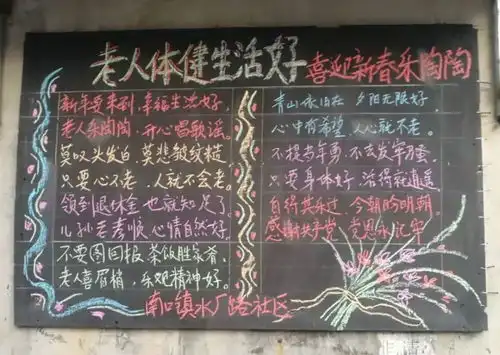 老人体健生活好 喜迎新春乐陶陶
新年要来到，幸福生活好。
老人乐陶陶，开心唱歌谣。
莫叹头发白，莫悲皱纹糙。
只要心不老，人就不会老。
领到退休金，也就知足了
儿孙若孝顺，心情自然好。
不要图回报，茶饭胜家肴，
老人喜眉梢，乐观精神好。
青山依旧在，夕阳无限好，
心中有希望，人心就不老。
不提当年勇，不去发牢骚，
只要身体好，活得就逍遥
自得其乐过，今朝盼明朝。
感谢共产党，党恩永记牢
南口镇水厂路社区